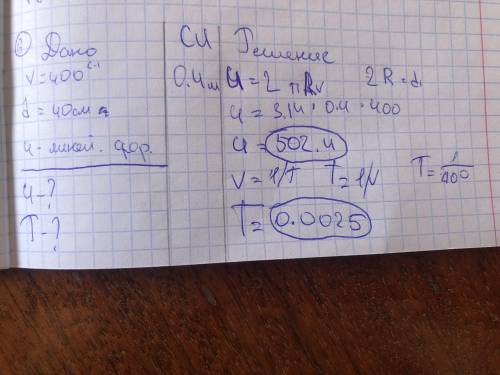 ② Дано
СИ
Решение
ν=400 с⁻¹
0.4м
υ=2πRν 2R=d
d=40см
υ=3.14·0.4·400
υ - линей.
υ=502.4
ν=1/T T=1/ν T=1/400
υ-?
T=0.0025
T-?